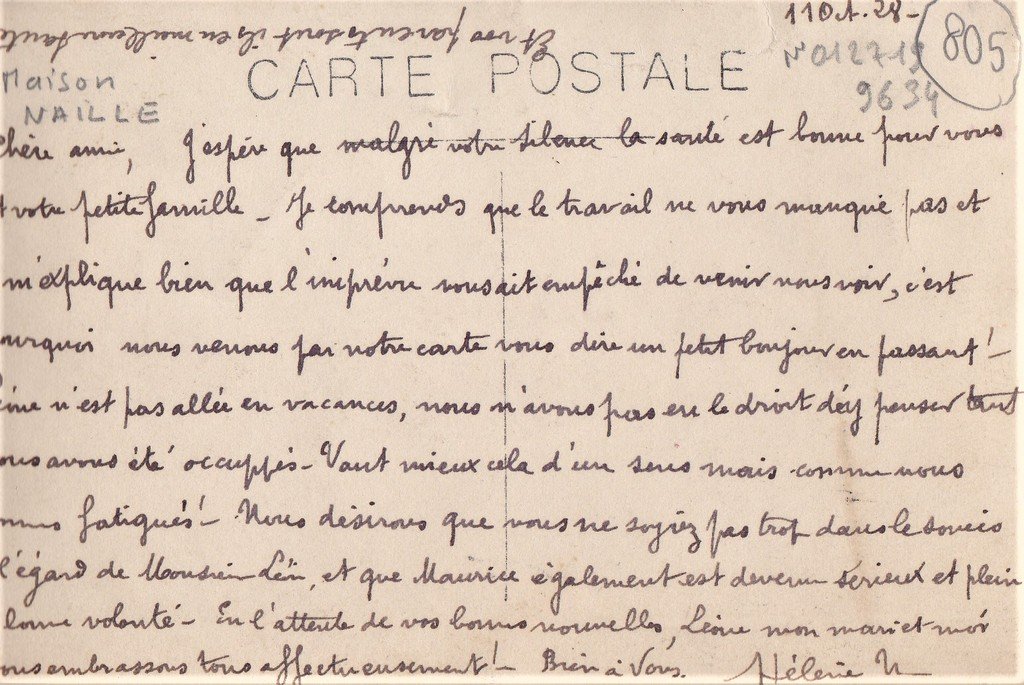 11 Oct. 28 -
805
Et vos parents sont ils en meilleure santé
CARTE POSTALE
N° 012719
9634
Maison
NAILLE
chère amie, J'espère que malgré votre silence la santé est bonne pour vous
t votre petite famille - Je comprends que le travail ne vous manque pas et
m'explique bien que l'imprévu vous ait empêché de venir nous voir, c'est
urquoi nous venons par notre carte vous dire un petit bonjour en passant ! -
n'est pas allée en vacances, nous n'avons pas eu le droit d'éy penser tant
ous avons été occuppés - Vaut mieux cela d'un sens mais comme nous
mmes fatigués ! - Nous désirons que vous ne soyiez pas trop dans le soucis
l'égard de Monsieur Léon, et que Maurice également est devenu sérieux et plein
bonne volonté - En l'attente de vos bonnes nouvelles, Léone mon mari et moi
ous embrassons tous affectueusement ! - Bien à Vous. Hélène N